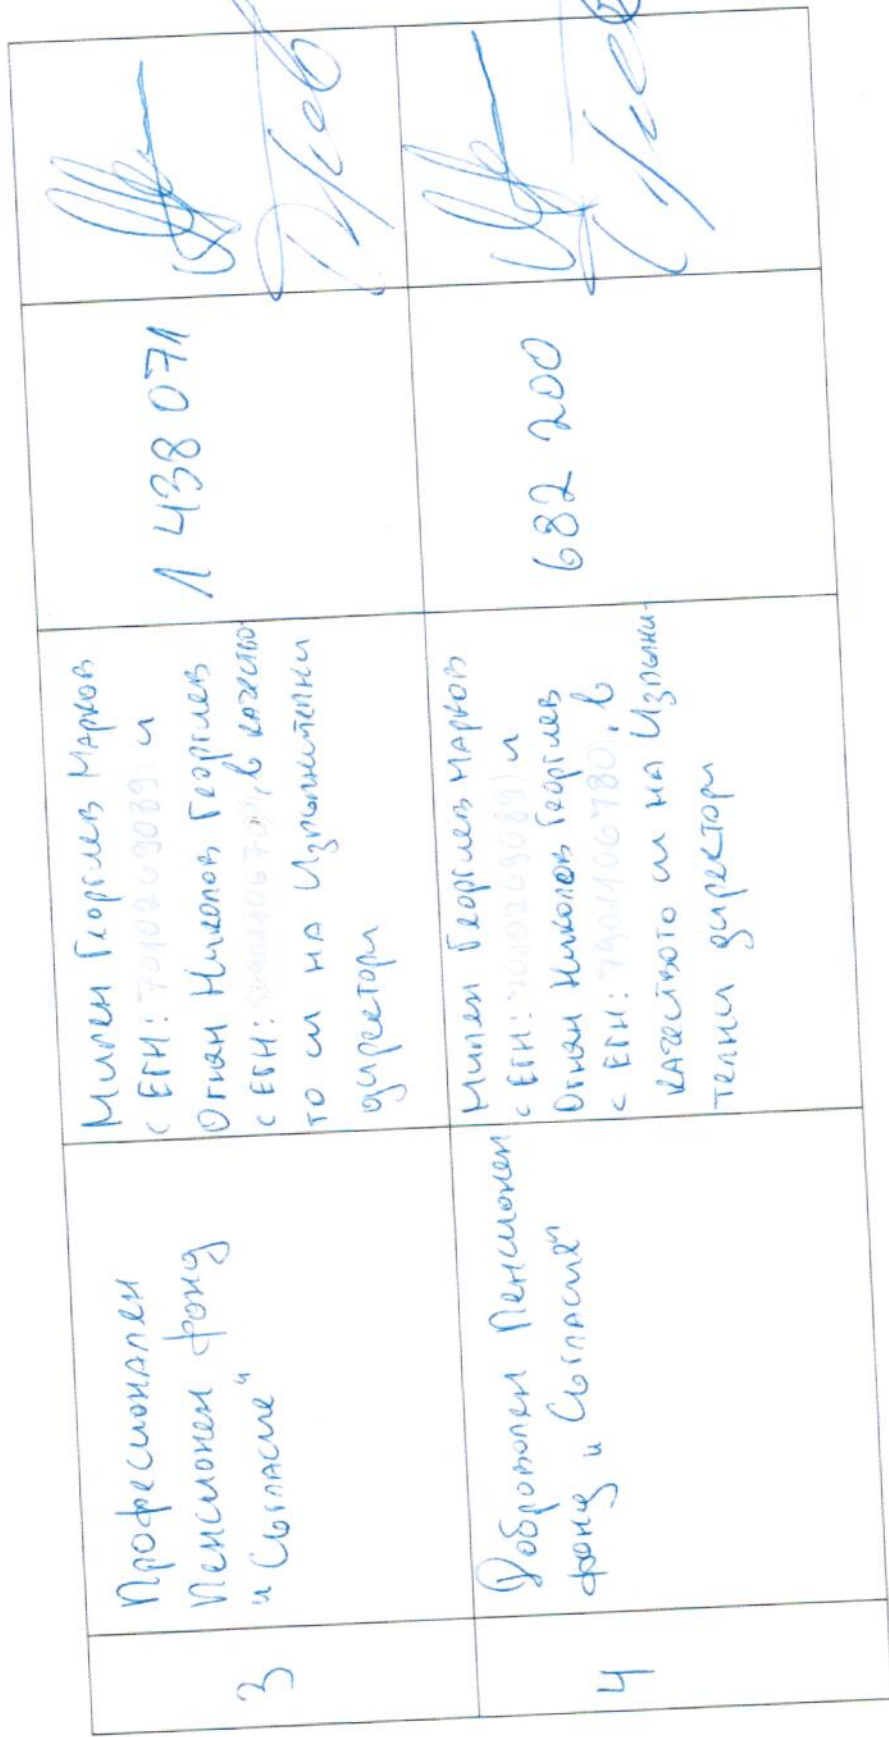 3
Професионален
Пенсионен фонд
"Съгласие"
Милен Георгиев Марков
с ЕГН: и
Огнян Николов Георгиев
с ЕГН: , в качество-
то си на Изпълнителни
директори
1 438 071
4
Доброволен Пенсионен
фонд "Съгласие"
Милен Георгиев Марков
с ЕГН: и
Огнян Николов Георгиев
с ЕГН: , в
качеството си на Изпълни-
телни директори
682 200